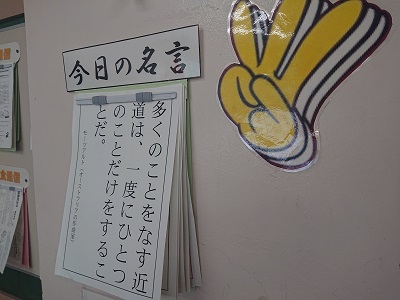 今日の名言
多くのことをなす近
道は、一度にひとつ
のことだけをするこ
とだ。
モーツァルト（オーストリアの作曲家）